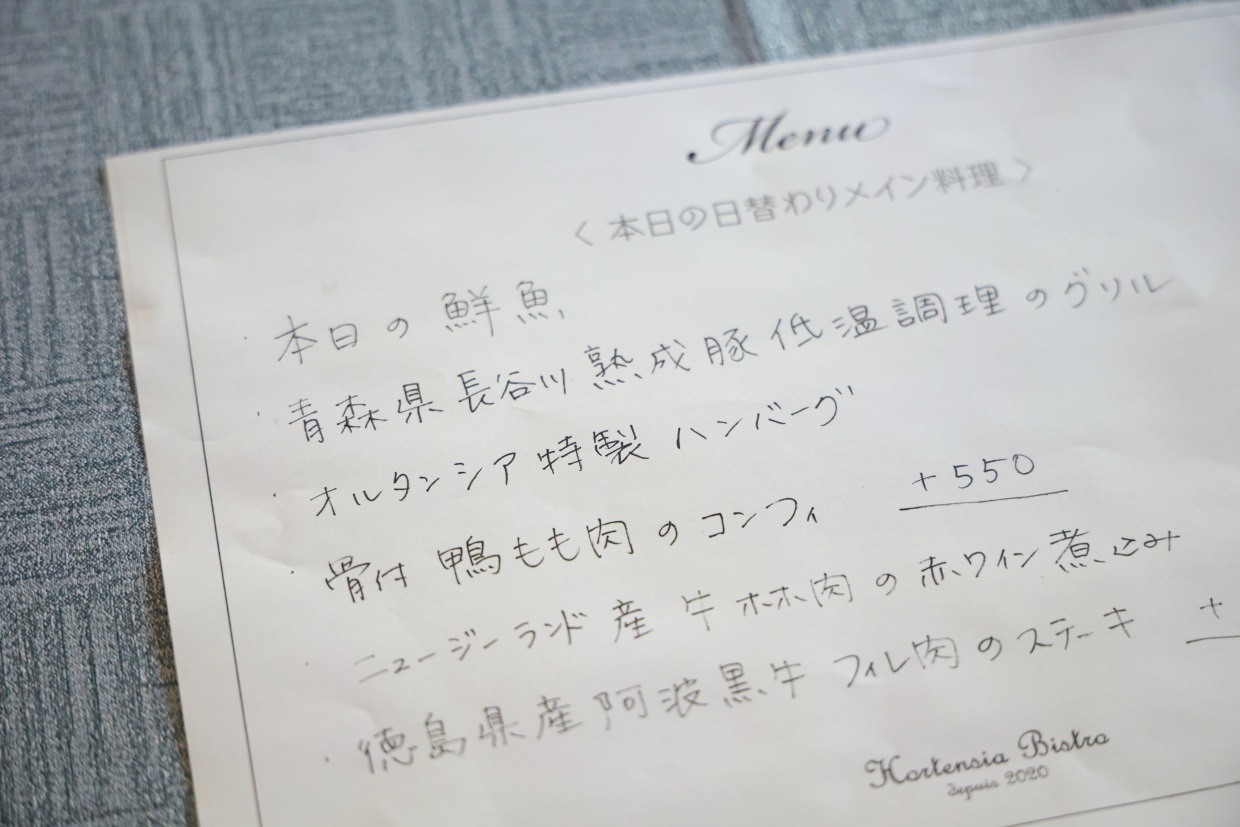 Menu
〈 本日の日替わりメイン料理 〉
・本日の鮮魚
・青森県長谷川熟成豚低温調理のグリル
・オルタンシア特製ハンバーグ
・骨付鴨もも肉のコンフィ +550
・ニュージーランド産牛ホホ肉の赤ワイン煮込み
・徳島県産阿波黒牛フィレ肉のステーキ +
Hortensia Bistro
depuis 2020